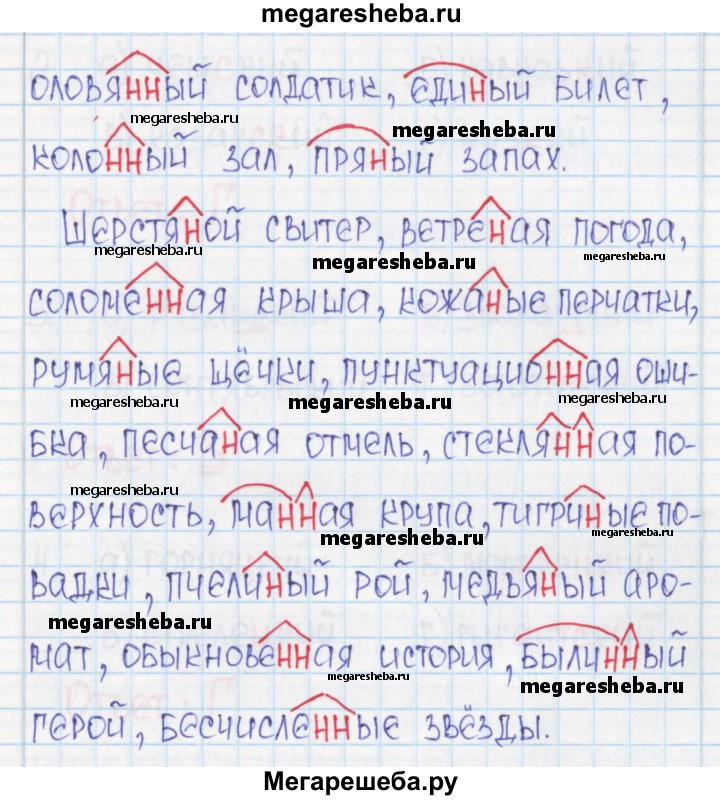 megaresheba.ru
оловянный солдатик, единый билет,
megaresheba.ru
megaresheba.ru
колонный зал, пряный запах.
Шерстяной свитер, ветреная погода,
megaresheba.ru
megaresheba.ru
megaresheba.ru
соломенная крыша, кожаные перчатки,
румяные щёчки, пунктуационная оши-
megaresheba.ru
megaresheba.ru
megaresheba.ru
бка, песчаная отмель, стеклянная по-
megaresheba.ru
верхность, манная крупа, тигриные по-
megaresheba.ru
megaresheba.ru
вадки, пчелиный рой, медьяный аро-
megaresheba.ru
мат, обыкновенная история, былинный
megaresheba.ru
megaresheba.ru
герой, бесчисленные звёзды.
Мегарешеба.ру